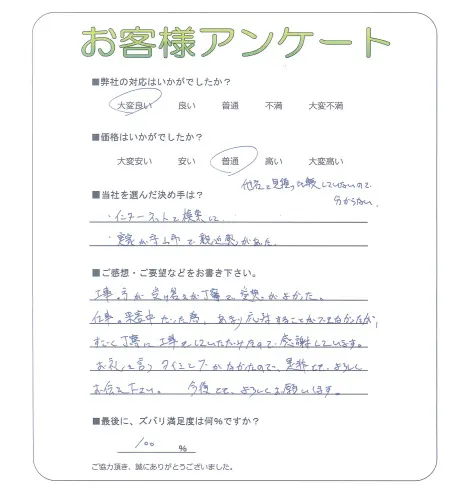 お客様アンケート
■弊社の対応はいかがでしたか？
大変良い 良い 普通 不満 大変不満
■価格はいかがでしたか？
大変安い 安い 普通 高い 大変高い
他社と見積り比較していないので
分からない
■当社を選んだ決め手は？
・インターネットで検索して
・実家が 市で親近感があった。
■ご感想・ご要望などをお書き下さい。
工事の方が 丁寧で 感じがよかった。
仕事の 中だった為、あまり 応対することができなかったが、
すごく丁寧に工事をしていただけたので感謝しています。
お礼を言うタイミングがなかったので、是非ともよろしく
お伝え下さい。 今後とも、よろしくお願いします。
■最後に、ズバリ満足度は何%ですか？
100 %
ご協力頂き、誠にありがとうございました。